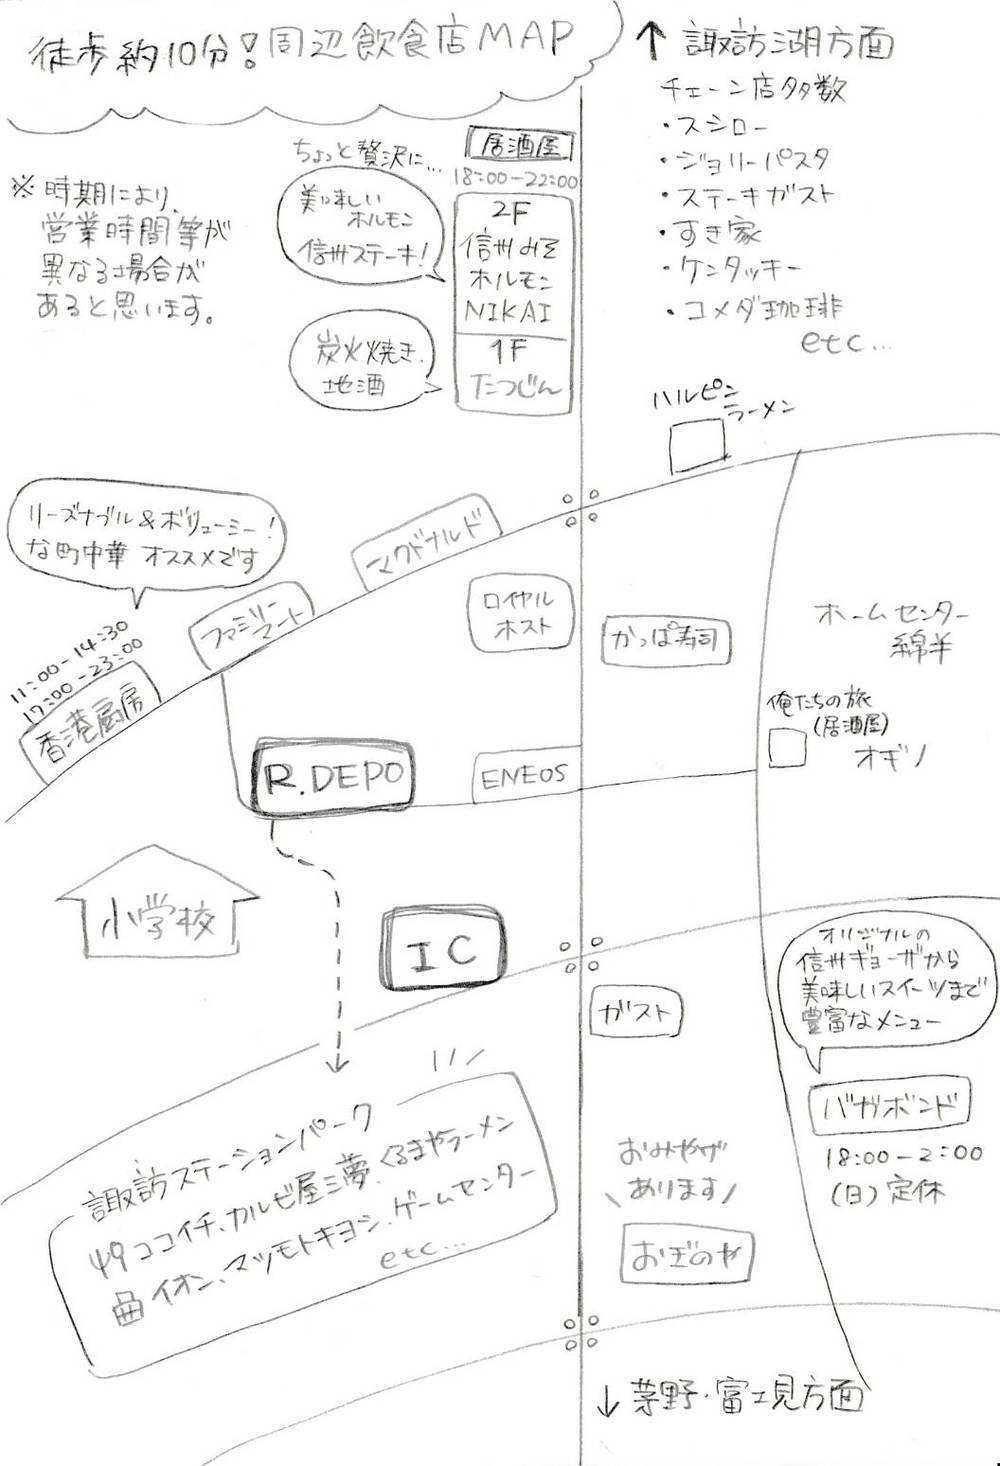 徒歩約10分!周辺飲食店MAP
↑諏訪湖方面
チェーン店多数
・スシロー
・ジョリーパスタ
・ステーキガスト
・すき家
・ケンタッキー
・コメダ珈琲
etc...
※時期により、
営業時間等が
異なる場合が
あると思います。
ちょっと贅沢に...
居酒屋
18:00-22:00
美味しい
ホルモン
信州ステーキ!
2F
信州みそ
ホルモン
NIKAI
炭火焼き、
地酒
1F
たつじん
ハルピン
ラーメン
リーズナブル&ボリューミー!
な町中華 オススメです
11:00-14:30
17:00-23:00
香港厨房
ファミリー
マート
マクドナルド
ロイヤル
ホスト
かっぱ寿司
ホームセンター
綿半
俺たちの旅
(居酒屋)
オギノ
R.DEPO
ENEOS
小学校
IC
ガスト
オリジナルの
信州ギョーザから
美味しいスイーツまで
豊富なメニュー
バガボンド
18:00-2:00
(日)定休
諏訪ステーションパーク
ココイチ、カルビ屋三夢、くるまやラーメン
イオン、マツモトキヨシ、ゲームセンター
etc...
おみやげ
あります
おぎのや
↓茅野・富士見方面